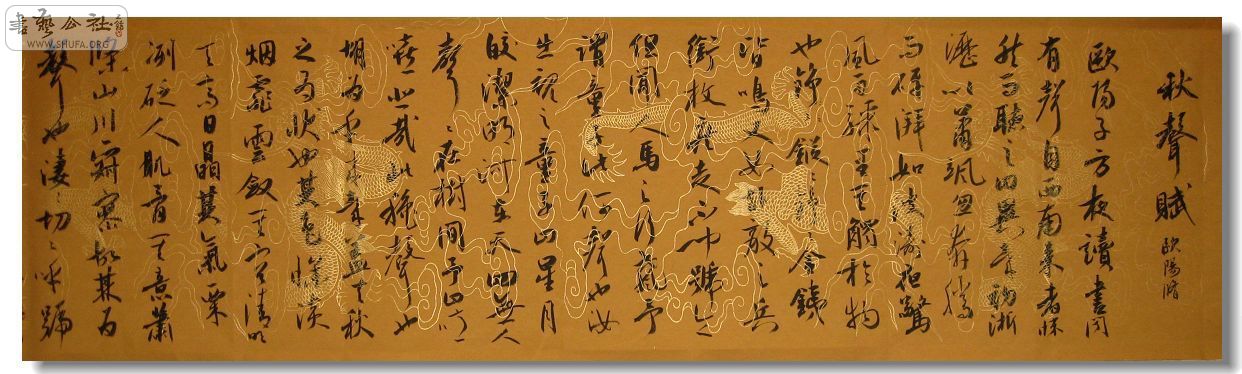 書藝公社
WWW.SHUFA.ORG
秋聲賦 歐陽脩
歐陽子方夜讀書聞
有聲自西南來者悚
然而聽之曰異哉初淅
瀝以蕭颯忽奔騰
而砰湃如波濤夜驚
風雨驟至其觸於物
也錚〻鏦〻金鐵
皆鳴又如赴敵之兵
銜枚疾走不聞號令
但聞人馬之行聲予
謂童子此何聲也汝
出視之童子曰星月
皎潔明河在天四無人
聲〻在樹間予曰吁
嘻悲哉此秋聲也
胡為乎來哉蓋夫秋
之為狀也其色慘淡
烟霏雲斂其容清明
天高日晶其氣栗
冽砭人肌骨其意蕭
條山川寂寥故其為
聲也淒〻切〻呼號